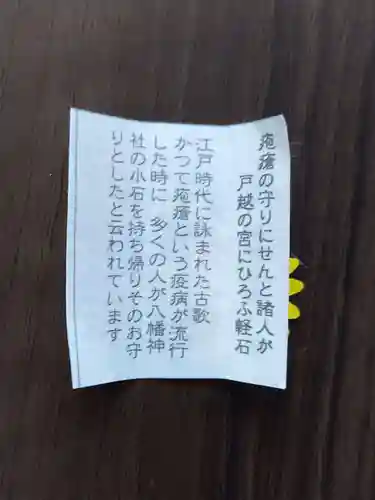 疱瘡の守りにせんと諸人が
戸越の宮にひろふ軽石
江戸時代に詠まれた古歌
かつて疱瘡という疫病が流行
した時に 多くの人が八幡神
社の小石を持ち帰りそのお守
りとしたと云われています